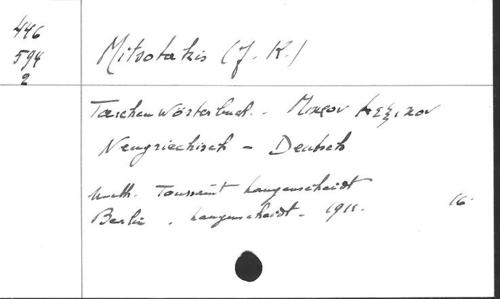 446
594
2
Mitsotakis (J. K.)
Taschenwörterbuch. - Μικρον Λεξικον
Neugriechisch - Deutsch
Meth. Toussaint Langenscheidt
Berlin. Langenscheidt. 1911. 16.